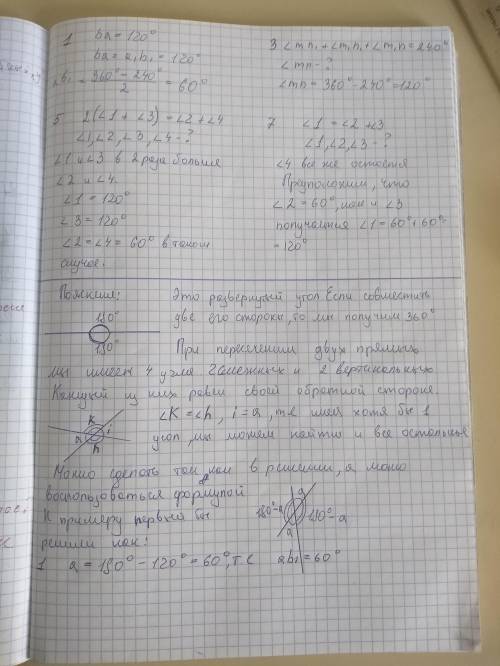 1 ba = 120°
ba = a₁b₁ = 120°
ab₁ = (360° - 240°)/2 = 60°
3 ∠mn₁ + ∠m₁n₁ + ∠m₁n = 240°
∠mn - ?
∠mn = 360° - 240° = 120°
5 2(∠1 + ∠3) = ∠2 + ∠4
∠1, ∠2, ∠3, ∠4 - ?
∠1 и ∠3 в 2 раза больше
∠2 и ∠4.
∠1 = 120°
∠3 = 120°
∠2 = ∠4 = 60° в таком
случае.
7 ∠1 = ∠2 + ∠3
∠1, ∠2, ∠3 - ?
∠4 все же остается
Предположим, что
∠2 = 60°, как и ∠3
получается ∠1 = 60° + 60° =
= 120°
Поясним:
180°
180°
Это развернутый угол. Если совместить
две его стороны, то мы получим 360°
При пересечении двух прямых
мы имеем 4 угла 2 смежных и 2 вертикальных
Каждый из них равен своей обратной стороне.
K
a i
h
∠K = ∠h, i = a, т.е имея хотя бы 1
угол, мы можем найти и все остальные
Можно сделать так, как в решении, а можно
воспользоваться формулой
К примеру первый бы
решили как:
a
180°-a 180°-a
a
1 a = 180° - 120° = 60°, т.е ab₁ = 60°